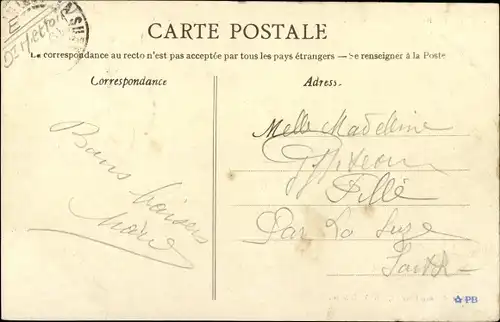 CARTE POSTALE
La correspondance au recto n'est pas acceptée par tous les pays étrangers — Se renseigner à la Poste
Correspondance
Adresse
Bons baisers
Marie
Melle Madeleine
Fillé
Par La Suze
Sarthe
PB